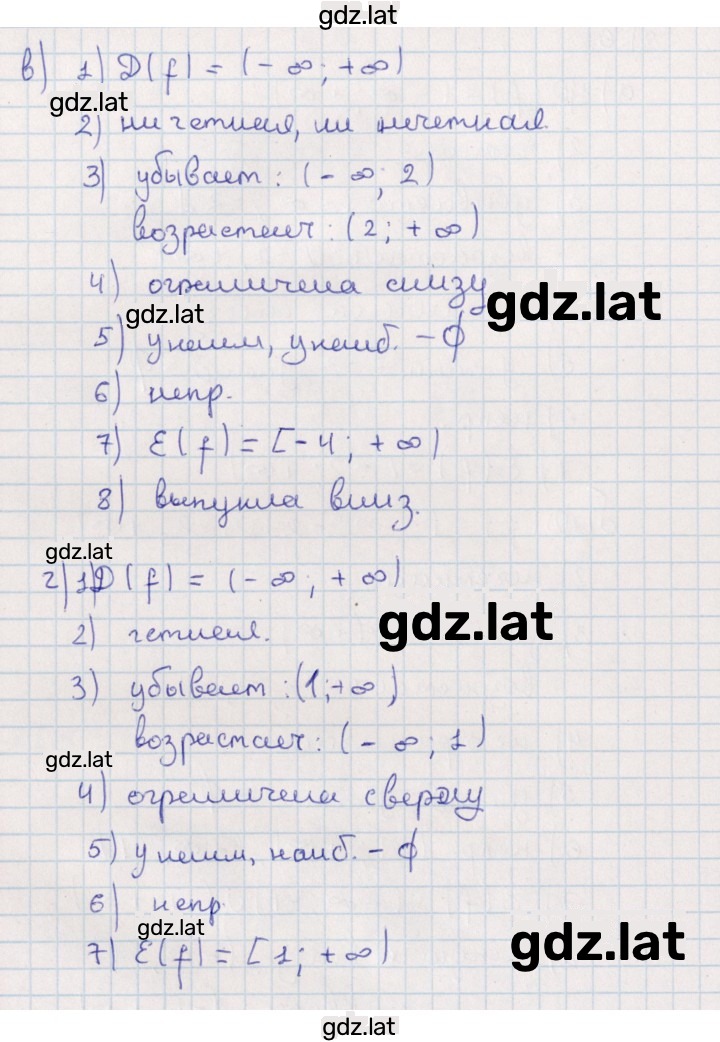 gdz.lat
в) 1) D(f) = (-∞; +∞)
gdz.lat
2) ни четная, ни нечетная.
3) убывает: (-∞; 2)
возрастает: (2; +∞)
4) ограничена снизу
gdz.lat
gdz.lat
5) y наим, y наиб. - ∅
6) непр.
7) E(f) = [-4; +∞)
8) выпукла вниз.
gdz.lat
г) 1) D(f) = (-∞; +∞)
gdz.lat
2) четная.
3) убывает: (1; +∞)
возрастает: (-∞; 1)
gdz.lat
4) ограничена сверху
5) y наим, наиб. - ∅
6) непр
gdz.lat
gdz.lat
7) E(f) = [1; +∞)
gdz.lat